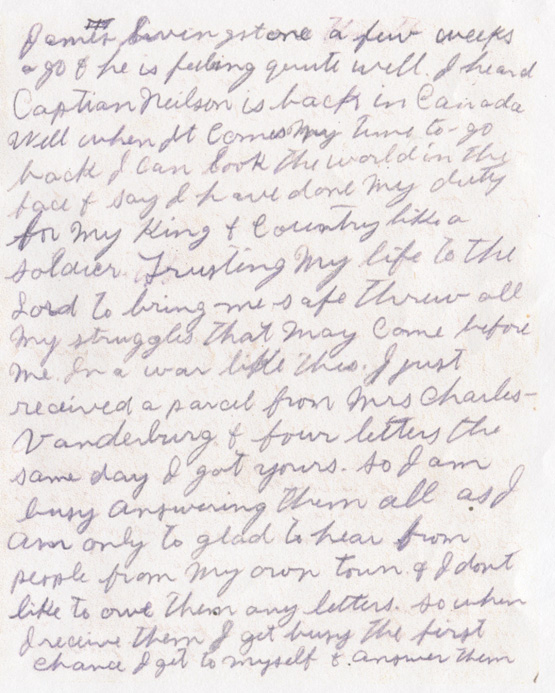 James Livingstone a few weeks
ago & he is feeling quite well. I heard
Captian Neilson is back in Canada
Well when It Comes My time to-go
back I can look the world in the
face & say I have done My duty
for My King & Country like a
soldier. Trusting My life to the
Lord to bring me safe threw all
My struggles that May Come before
Me. In a war like this. I just
received a parcel from Mrs Charles-
Vanderburg & four letters the
same day I got yours. so I am
busy answering them all as I
am only to glad to hear from
people from My own town. & I dont
like to owe them any letters. so when
I receive them I get busy the first
Chance I get to myself & answer them